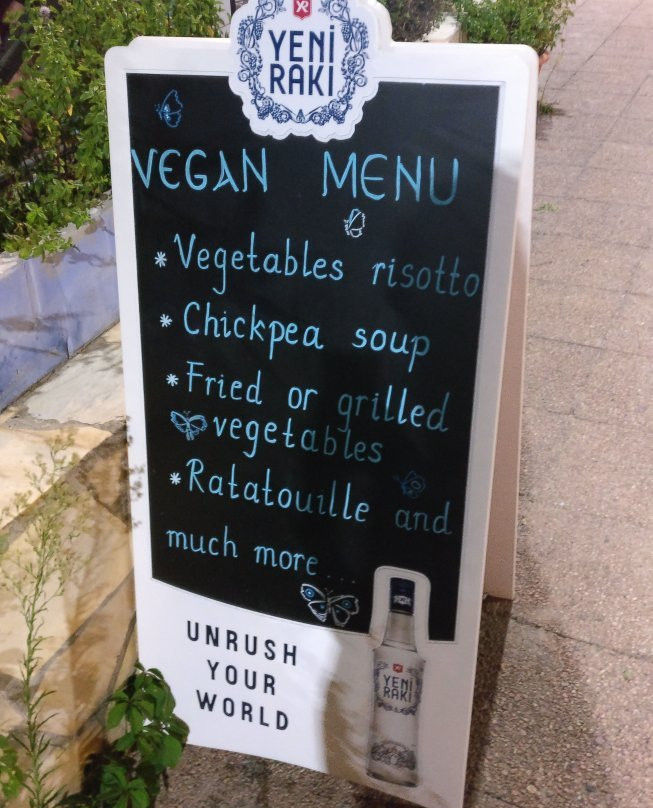 YENİ
RAKI
VEGAN MENU
* Vegetables risotto
* Chickpea soup
* Fried or grilled
vegetables
* Ratatouille and
much more....
UNRUSH
YOUR
WORLD
YENİ
RAKI